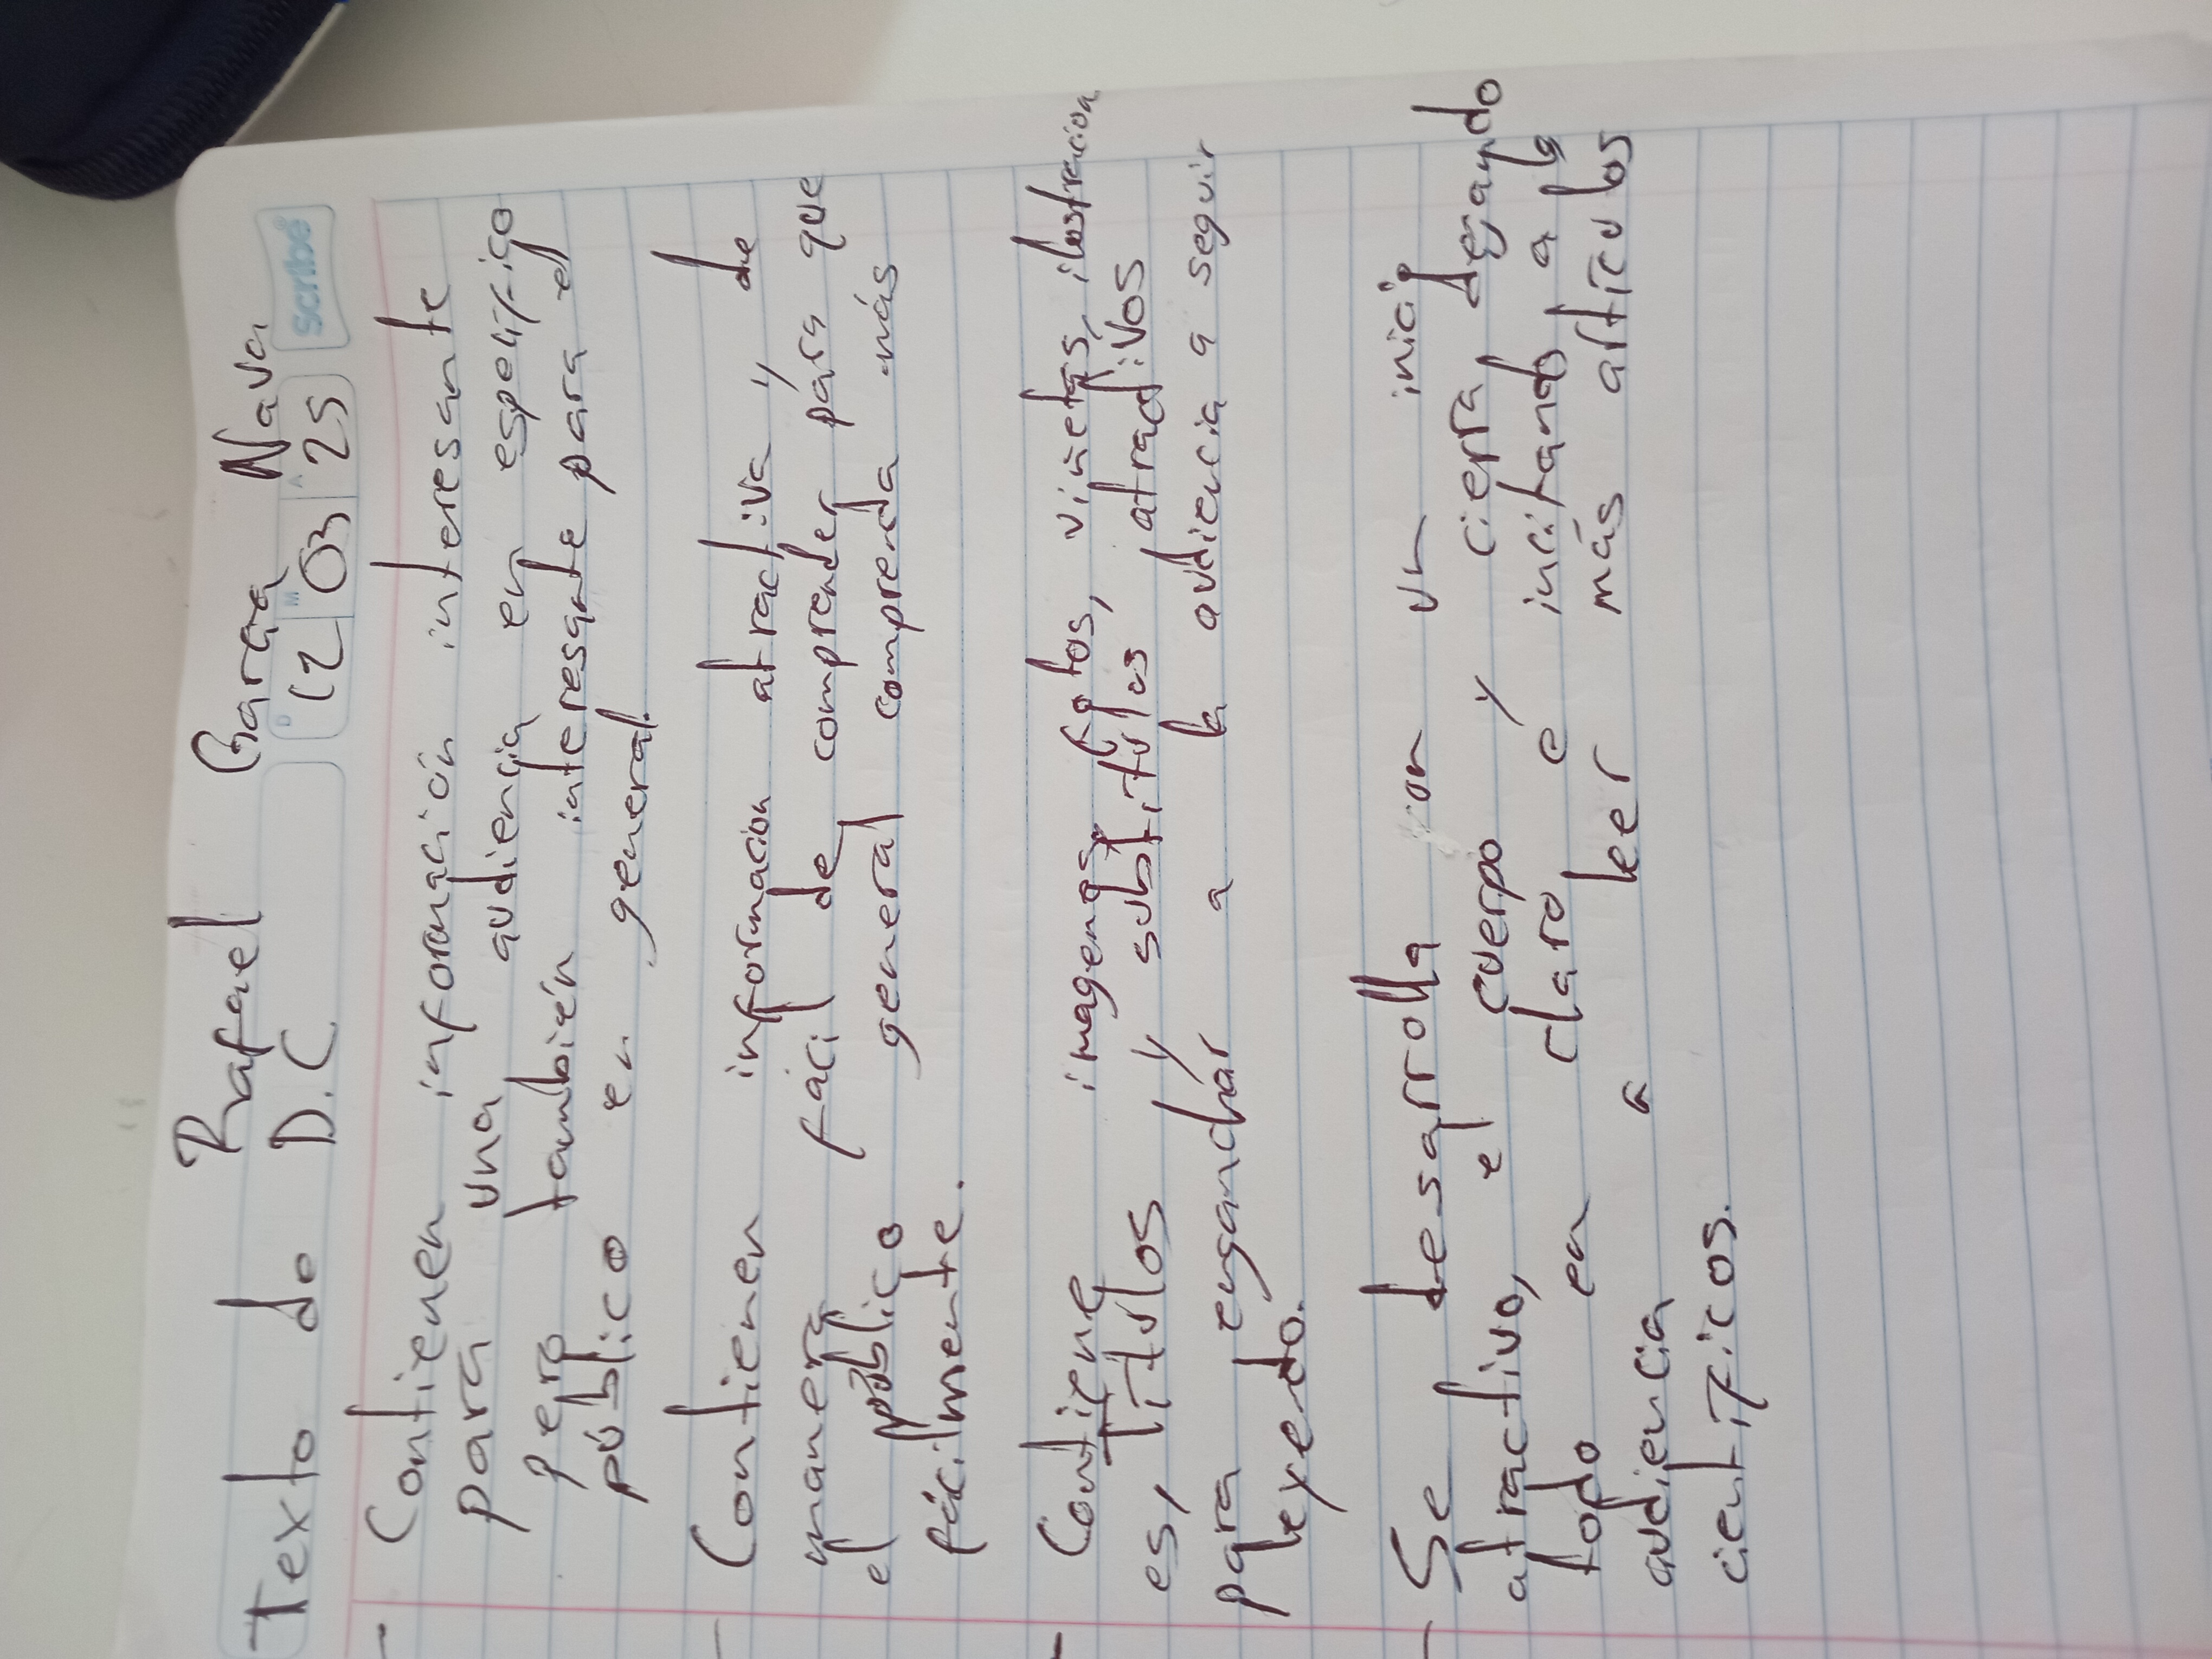 Rafael Garza Nava
Texto do D.C
D M A
12 03 25
Scribe
- Contienen información interesante
para una audiencia en específico
pero también interesante para el
público en general.
- Contienen informacion atractiva y de
manera fácil de comprender para que
el público general comprenda más
fácilmente.
- Contiene imagenes, fotos, viñetas, ilustracion
es, Titulos y subtitulos atractivos
para enganchar a la audiencia a seguir
leyendo.
- Se desarrolla con un inicio
atractivo, el cuerpo y cierra dejando
todo en claro e incitando a la
audiencia a leer más artículos
científicos.